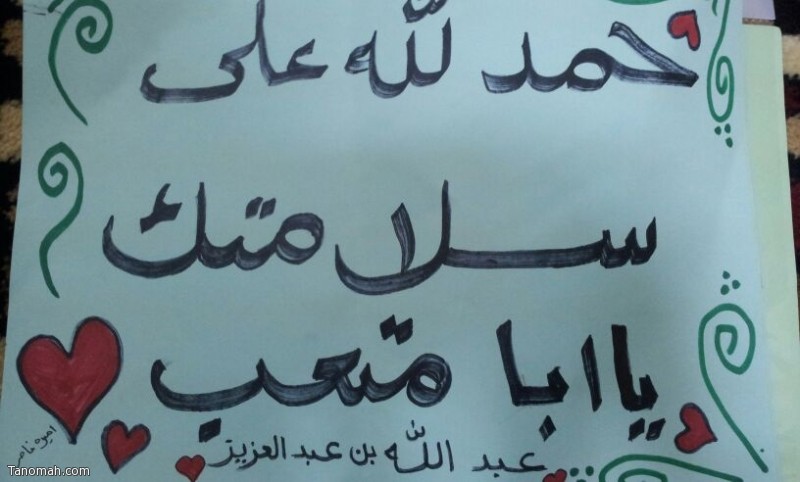 حمد لله على
سلامتك
يا ابا متعب
عبد الله بن عبد العزيز
Tanomah.com